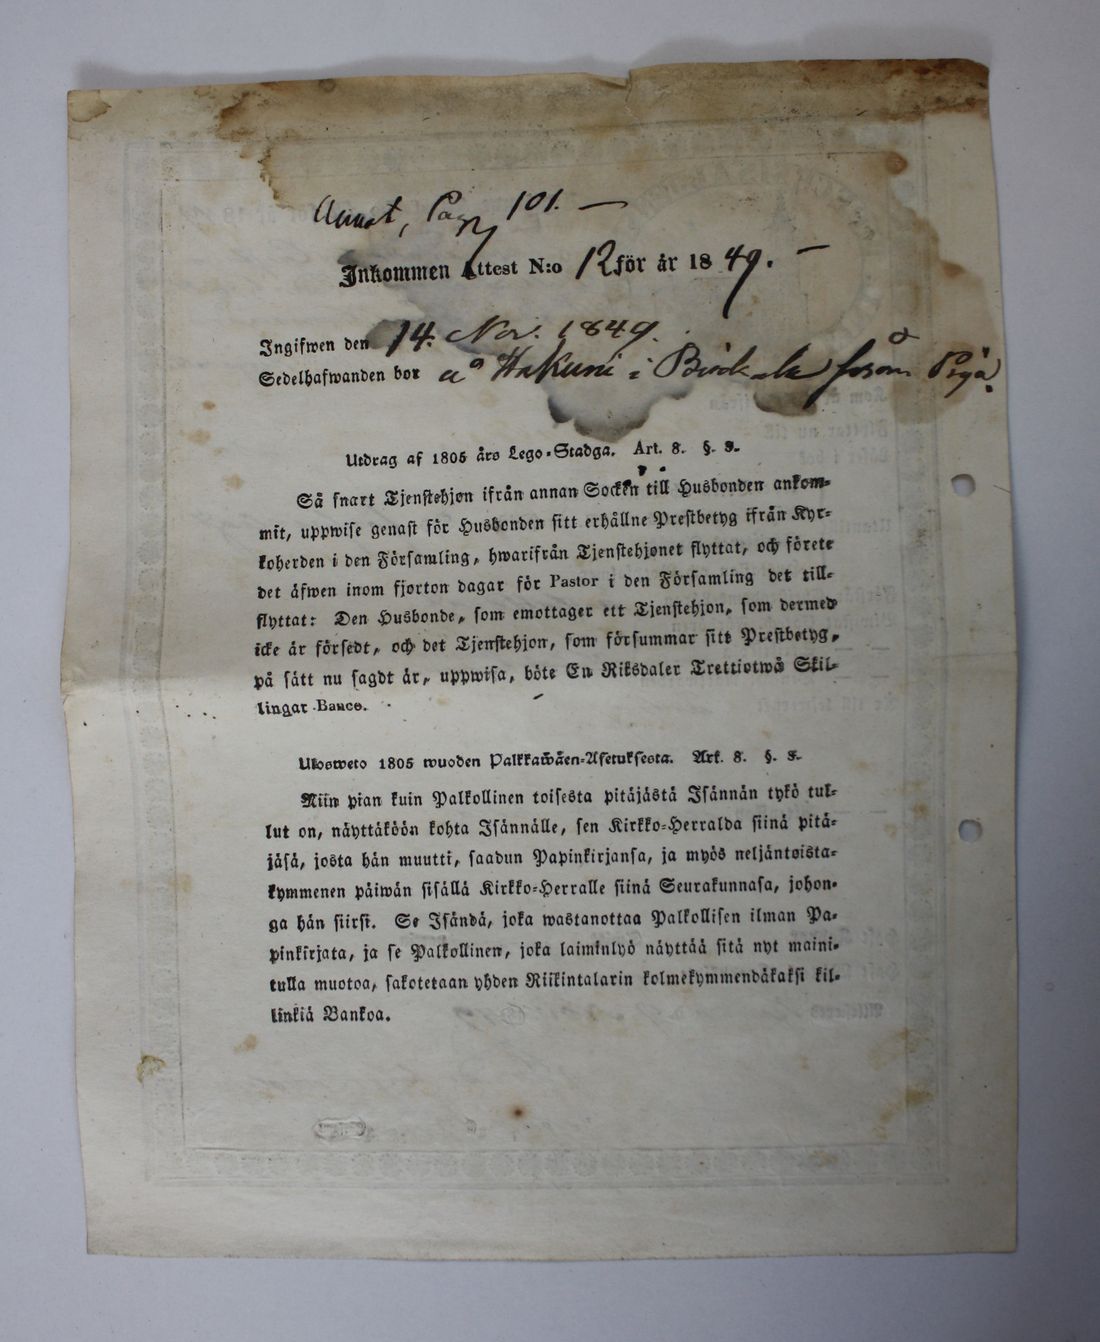 Annot, Pag 101. —
Inkommen Attest N:o 12 för år 1849. —
Ingifwen den 14. Nov. 1849.
Sedelhafwanden bor å Hakuni i Birkala såsom Piga.
Utdrag af 1805 års Lego-Stadga. Art. 8. §. 3.
Så snart Tjenstehjon ifrån annan Socken till Husbonden ankom-
mit, uppwise genast för Husbonden sitt erhållne Prestbetyg ifrån Kyr-
koherden i den Församling, hwarifrån Tjenstehjonet flyttat, och förete
det äfwen inom fjorton dagar för Pastor i den Församling det till-
flyttat: Den Husbonde, som emottager ett Tjenstehjon, som dermed
icke är försedt, och det Tjenstehjon, som försummar sitt Prestbetyg,
på sätt nu sagdt är, uppwisa, böte En Riksdaler Trettiotwå Skil-
lingar Banco.
Ulosweto 1805 wuoden Palkkawäen-Asetuksesta. Art. 8. §. 3.
Niin pian kuin Palkollinen toisesta pitäjästä Isännän tykö tul-
lut on, näyttäköön kohta Isännälle, sen Kirkko-Herralda siinä pitä-
jäsä, josta hän muutti, saadun Papinkirjansa, ja myös neljäntoista-
kymmenen päiwän sisällä Kirkko-Herralle siinä Seurakunnasa, johon-
ga hän siirsi. Se Isändä, joka wastanottaa Palkollisen ilman Pa-
pinkirjata, ja se Palkollinen, joka laiminlyö näyttää sitä nyt maini-
tulla muotoa, sakotetaan yhden Riikintalarin kolmekymmendäkaksi kil-
linkiä Bankoa.